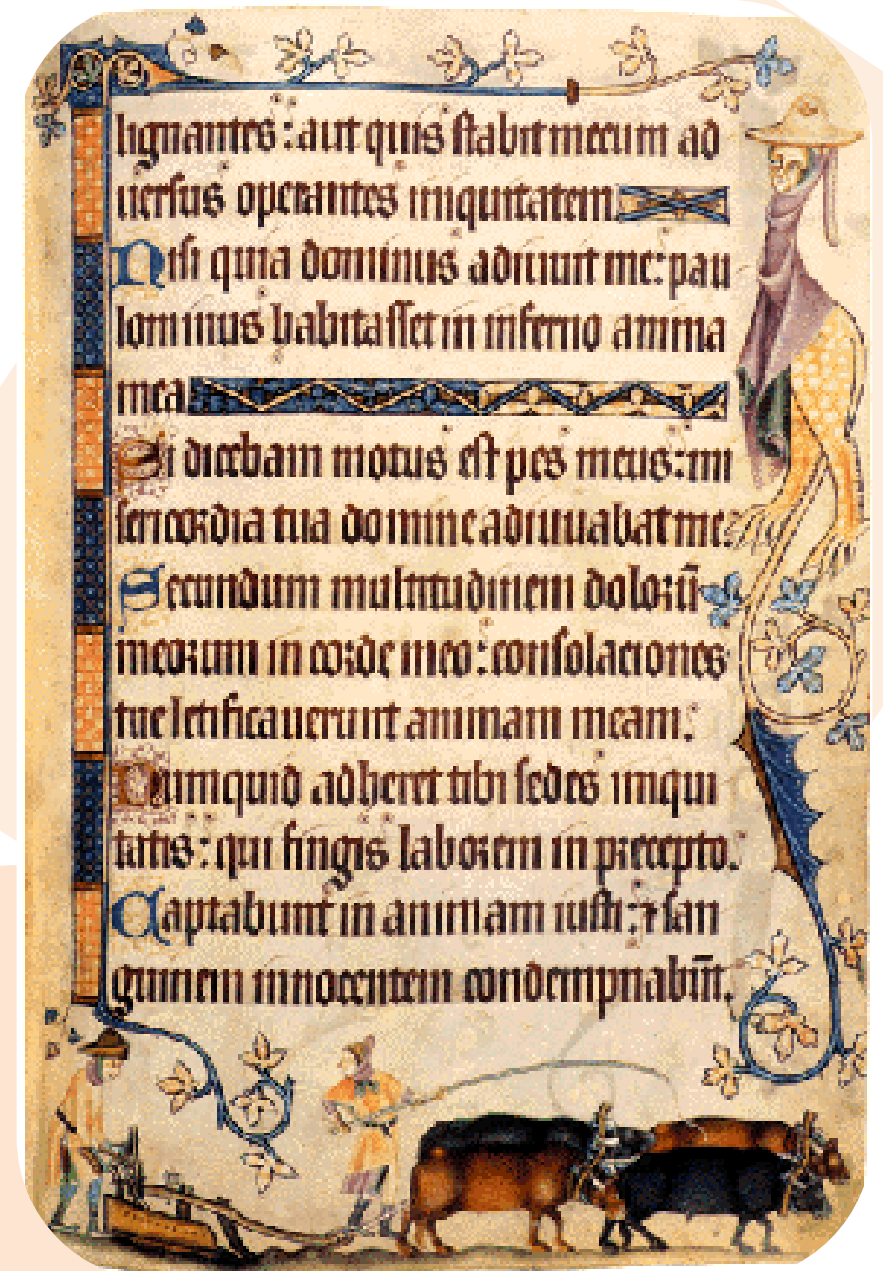 lignantes : aut quis stabit mecum ad
uersus operantes iniquitatem
Nisi quia dominus adiuuit me : pau
lominus habitasset in inferno anima
mea
Si dicebam motus est pes meus : mi
sericordia tua domine adiuuabat me.
Secundum multitudinem dolorū
meorum in corde meo : consolaciones
tue letificauerunt animam meam.
Numquid adheret tibi sedes iniqui
tatis : qui fingis laborem in precepto.
Captabunt in animam iusti : ⁊ san
guinem innocentem condempnabūt.